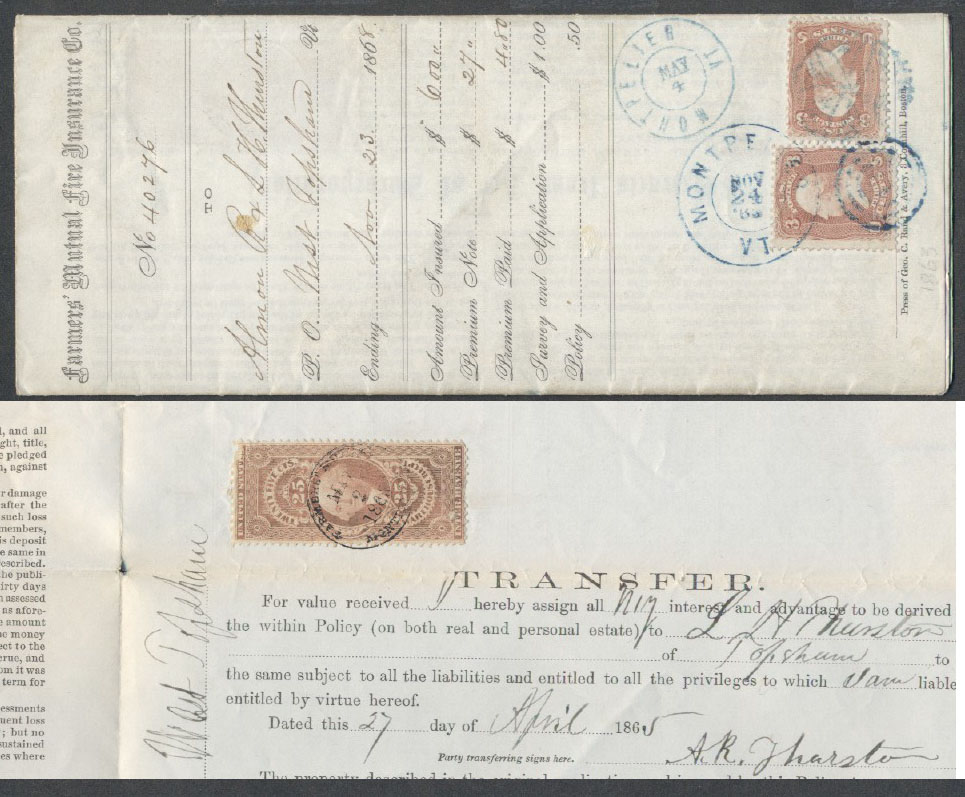 Farmers' Mutual Fire Insurance Co.
No 40276
TO
Almon R & L H Thurston
P. O. West Topsham Vt
Ending Nov 23 1868
Amount Insured $ 600 "
Premium Note $ 27 "
Premium Paid $
Survey and Application $ 1.00
Policy .50
MONTPELIER VT
MAY
4
MONTPE
NOV
24
VT
Press of Geo. C. Rand & Avery, 3 Cornhill, Boston.
1863
, and all
ght, title,
e pledged
n, against
r damage
after the
such loss
members,
is deposit
e same in
escribed.
he publi-
irty days
n assessed
as afore-
e amount
he money
ect to the
crue, and
om it was
term for
sessments
quent loss
; but no
sustained
es where
West Topsham
25 25
TRANSFER.
For value received I hereby assign all my interest and advantage to be derived
the within Policy (on both real and personal estate) to L H Thurston
of Topsham to
the same subject to all the liabilities and entitled to all the privileges to which I am liable
entitled by virtue hereof.
Dated this 27 day of April 1865
Party transferring signs here. A. R. Thurston
The property described in the original application